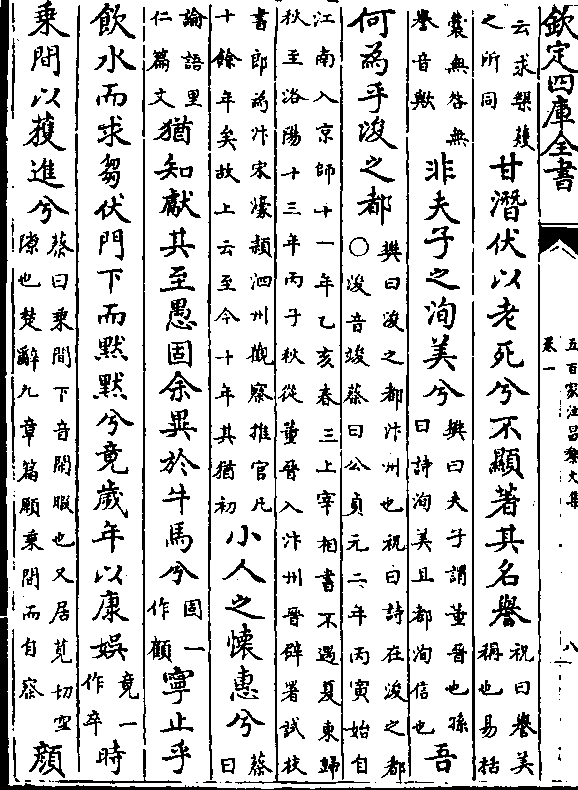 欽定四庫全書
五百家注昌黎文集
卷一
八
云求榘矱
之所同
甘潛伏以老死兮不顯著其名譽
祝曰譽美
稱也易括
囊無咎無
譽音歟
非夫子之洵美兮
樊曰夫子謂董晉也孫
曰詩洵美且都洵信也
吾
何為乎浚之都
樊曰浚之都汴州也祝曰詩在浚之都
○浚音竣蔡曰公貞元二年丙寅始自
江南入京師十一年乙亥春三上宰相書不遇夏東歸
秋至洛陽十三年丙子秋從董晉入汴州晉辟署試校
書郎為汴宋濠潁泗州觀察推官凡
十餘年矣故上云至今十年其猶初
小人之懷惠兮
蔡
曰
論語里
仁篇文
猶知獻其至愚固余異於牛馬兮
固一
作顧
寧止乎
飲水而求芻伏門下而默默兮竟歲年以康娛
竟一
作卒
時
乘間以獲進兮
蔡曰乘間下音閑暇也又居莧切空
隙也楚辭九章篇願乘間而自察
顔